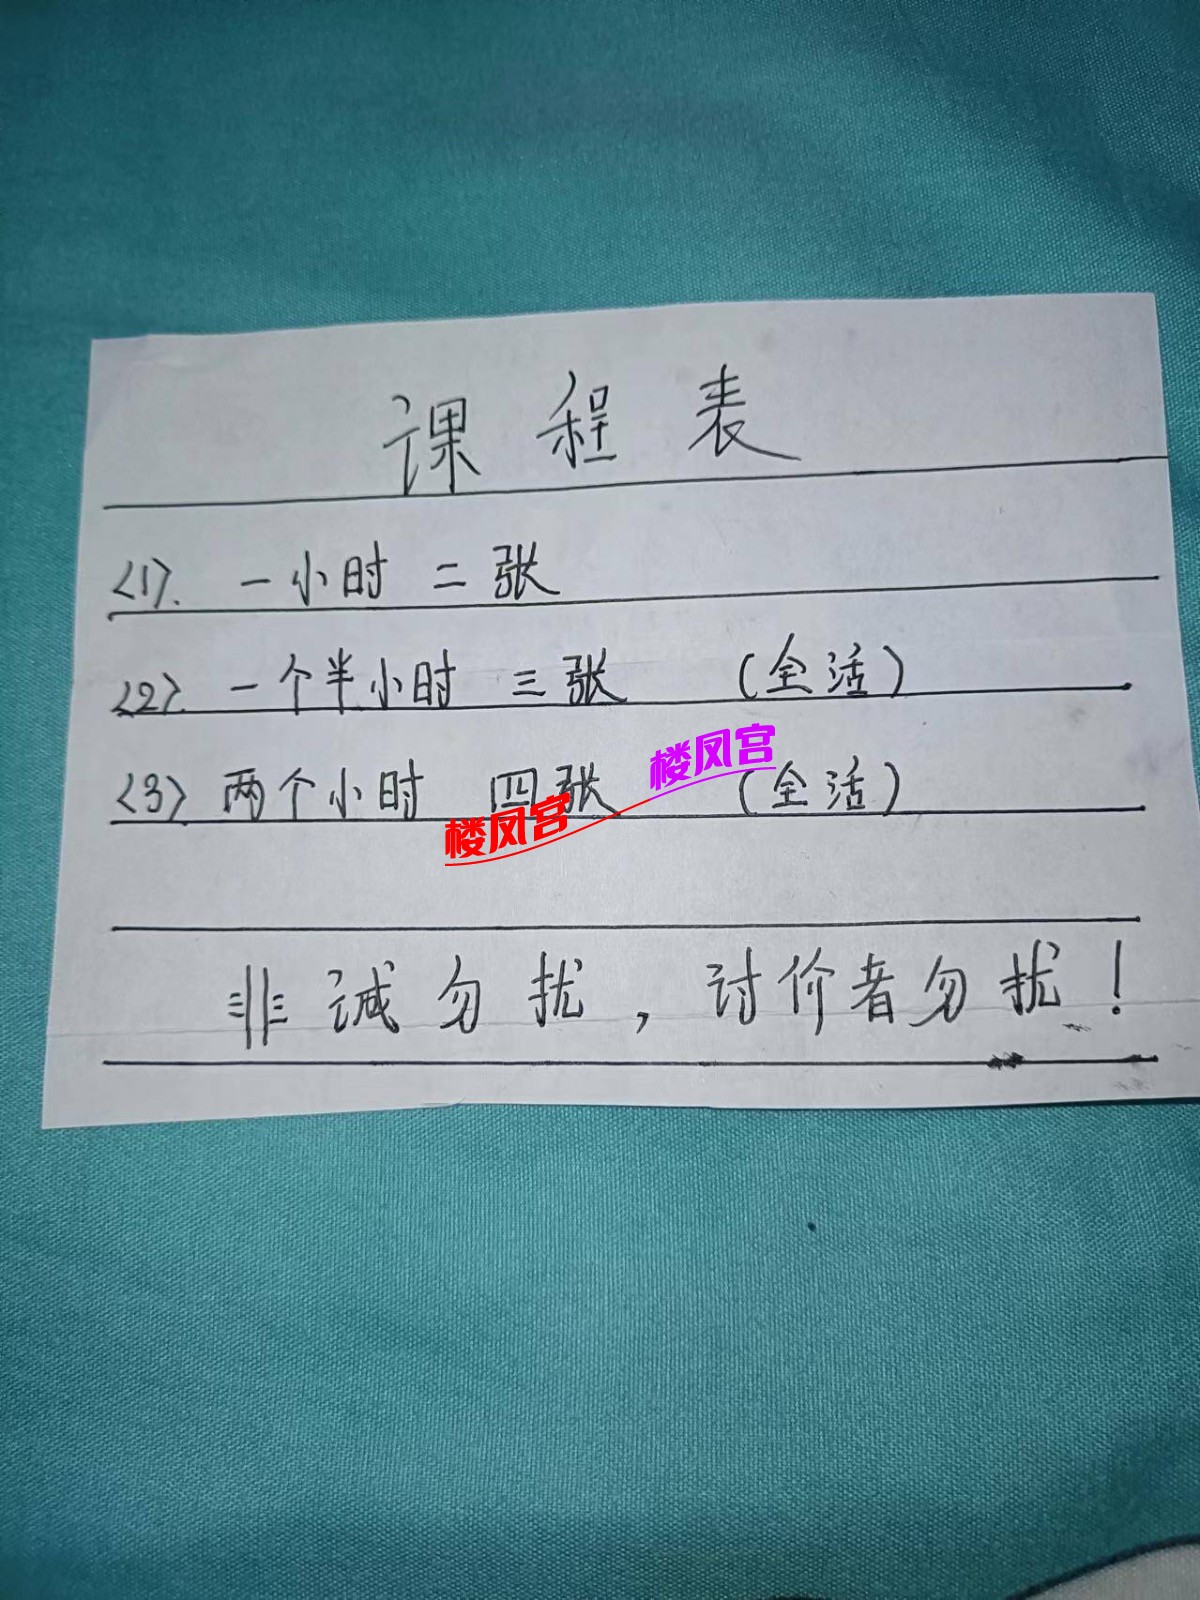 课程表
<1>. 一小时 二张
<2>. 一个半小时 三张 (全活)
<3> 两个小时 四张 (全活)
楼凤宫
楼凤宫
非诚勿扰，讨价者勿扰！